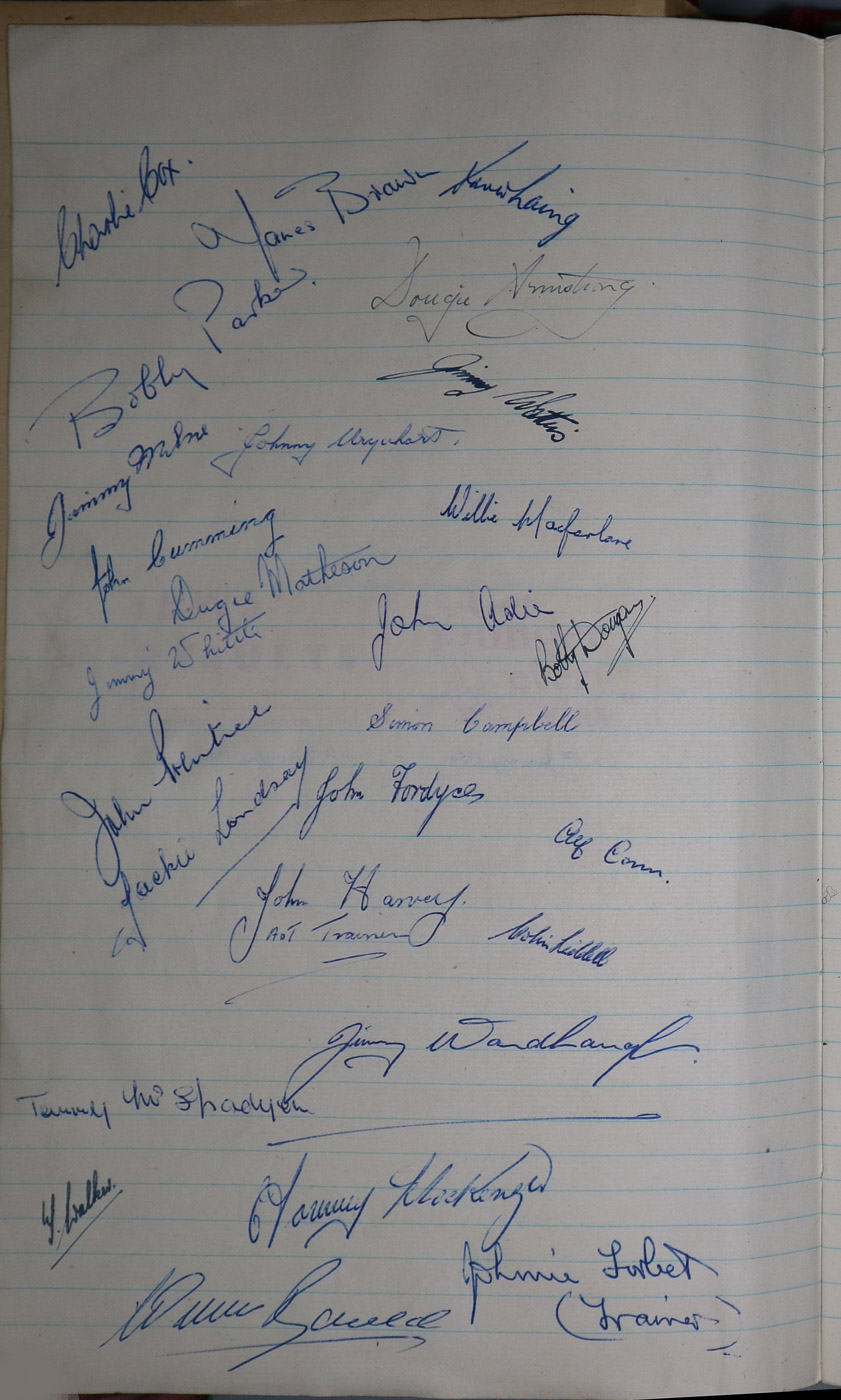 Charlie Cox.
James Brown
Laing
Bobby Parker.
Dougie Armstrong.
Jimmy Watters
Jimmy Milne
Johnny Urquhart.
Willie Macfarlane
John Cumming
Dugie Matheson
John Adie
Bobby Dougan.
Jimmy Whittle
Simon Campbell
John Prentice
Jackie Lindsay
John Fordyce
Alf Conn.
John Harvey.
Ast Trainer
Colin Liddell
Jimmy Wardhaugh.
Tommy McSpadyen
Tommy Mackenzie
T. Walker.
Johnnie Torbet
(Trainer)
Bauld